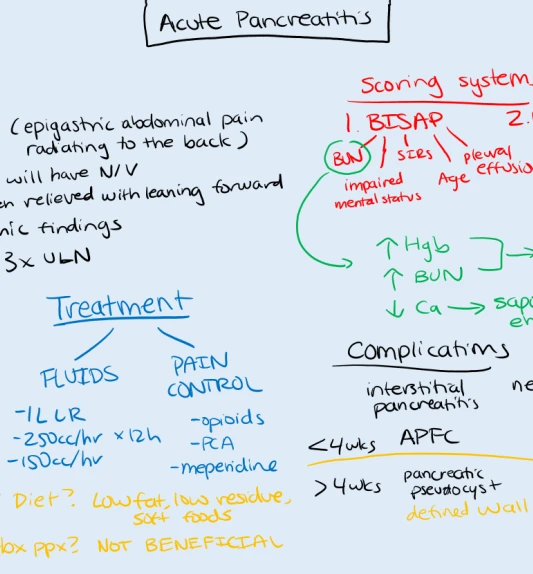 Acute Pancreatitis
(epigastric abdominal pain
radiating to the back)
will have N/V
relieved with leaning forward
findings
3x ULN
Treatment
FLUIDS
-1L LR
-250cc/hr x12h
-150cc/hr
PAIN
CONTROL
-opioids
-PCA
-meperidine
Diet? Low fat, low residue,
soft foods
ppx? NOT BENEFICIAL
Scoring system
1. BISAP
2.
BUN
impaired
mental status
SIRS
Age
pleural
effusio
↑ Hgb
↑ BUN
↓ Ca → sapo
Complications
interstitial
pancreatitis
ne
<4wks APFC
>4wks pancreatic
pseudocyst
defined wall